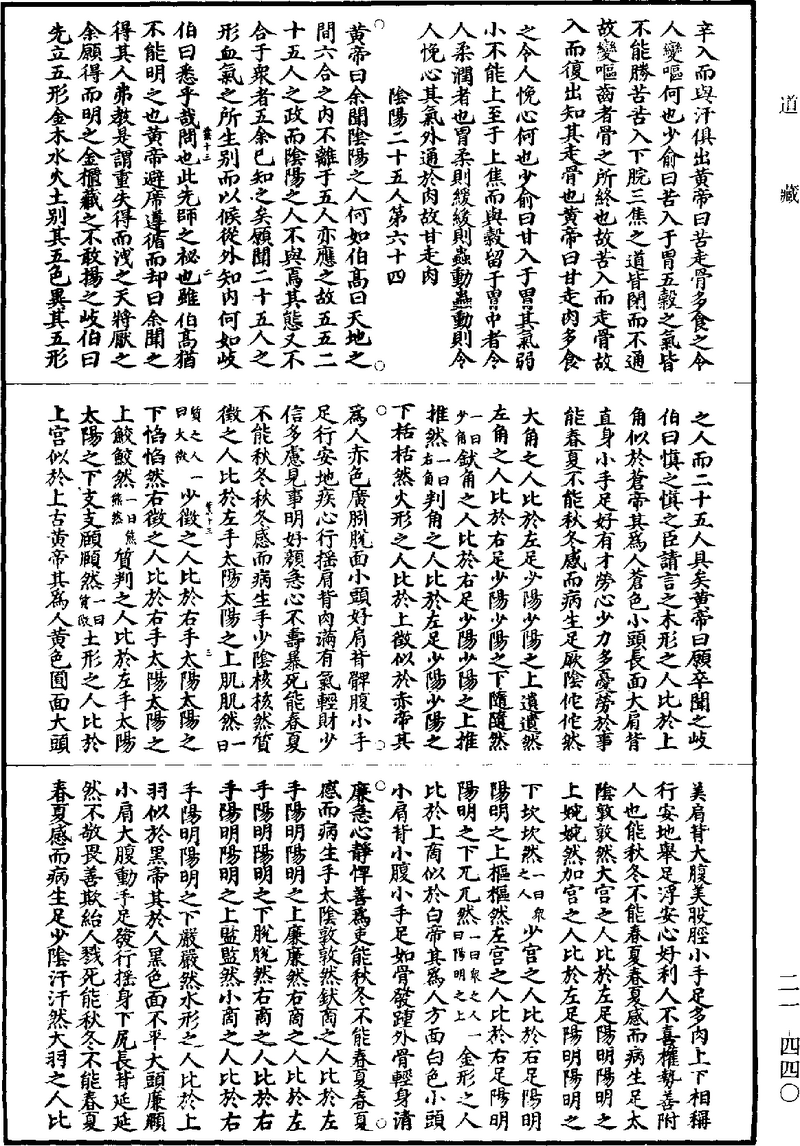 道藏
辛入而與汗俱出黃帝曰苦走骨多食之令
人變嘔何也少俞曰苦入于胃五穀之氣皆
不能勝苦苦入下脘三焦之道皆閉而不通
故變嘔齒者骨之所終也故苦入而走骨故
入而復出知其走骨也黃帝曰甘走肉多食
之令人悗心何也少俞曰甘入于胃其氣弱
小不能上至于上焦而與穀留于胃中者令
人柔潤者也胃柔則緩緩則蟲動蟲動則令
人悗心其氣外通於肉故甘走肉
陰陽二十五人第六十四
黃帝曰余聞陰陽之人何如伯高曰天地之
間六合之內不離于五人亦應之故五五二
十五人之政而陰陽之人不與焉其態又不
合于眾者五余已知之矣願聞二十五人之
形血氣之所生別而以候從外知內何如岐
伯曰悉乎哉問也此先師之祕也雖伯高猶
不能明之也黃帝避席遵循而却曰余聞之
得其人弗教是謂重失得而洩之天將厭之
余願得而明之金櫃藏之不敢揚之岐伯曰
先立五形金木水火土別其五色異其五形
之人而二十五人具矣黃帝曰願卒聞之岐
伯曰慎之慎之臣請言之木形之人比於上
角似於蒼帝其為人蒼色小頭長面大肩背
直身小手足好有才勞心少力多憂勞於事
能春夏不能秋冬感而病生足厥陰佗佗然
大角之人比於左足少陽少陽之上遺遺然
左角之人比於右足少陽少陽之下隨隨然
一曰少角釱角之人比於右足少陽少陽之上推
推然一曰右角判角之人比於左足少陽少陽之
下栝栝然火形之人比於上徵似於赤帝其
為人赤色廣䏖脫面小頭好肩背髀腹小手
足行安地疾心行搖肩背肉滿有氣輕財少
信多慮見事明好顏急心不壽暴死能春夏
不能秋冬秋冬感而病生手少陰核核然質
徵之人比於左手太陽太陽之上肌肌然一曰
質之人一曰大徵少徵之人比於右手太陽太陽之
下慆慆然右徵之人比於右手太陽太陽之
上鮫鮫然一曰熊熊然質判之人比於左手太陽
太陽之下支支頤頤然一曰質徵土形之人比於
上宮似於上古黃帝其為人黃色圓面大頭
美肩背大腹美股脛小手足多肉上下相稱
行安地舉足浮安心好利人不喜權勢善附
人也能秋冬不能春夏春夏感而病生足太
陰敦敦然大宮之人比於左足陽明陽明之
上婉婉然加宮之人比於左足陽明陽明之
下坎坎然一曰眾之人少宮之人比於右足陽明
陽明之上樞樞然左宮之人比於右足陽明
陽明之下兀兀然一曰眾之人一曰陽明之上金形之人
比於上商似於白帝其為人方面白色小頭
小肩背小腹小手足如骨發踵外骨輕身清
廉急心靜悍善為吏能秋冬不能春夏春夏
感而病生手太陰敦敦然釱商之人比於左
手陽明陽明之上廉廉然右商之人比於左
手陽明陽明之下脫脫然右商之人比於右
手陽明陽明之上監監然小商之人比於右
手陽明陽明之下嚴嚴然水形之人比於上
羽似於黑帝其於人黑色面不平大頭廉頤
小肩大腹動手足發行搖身下尻長背延延
然不敬畏善欺紿人戮死能秋冬不能春夏
春夏感而病生足少陰汗汗然大羽之人比
二一 四四〇